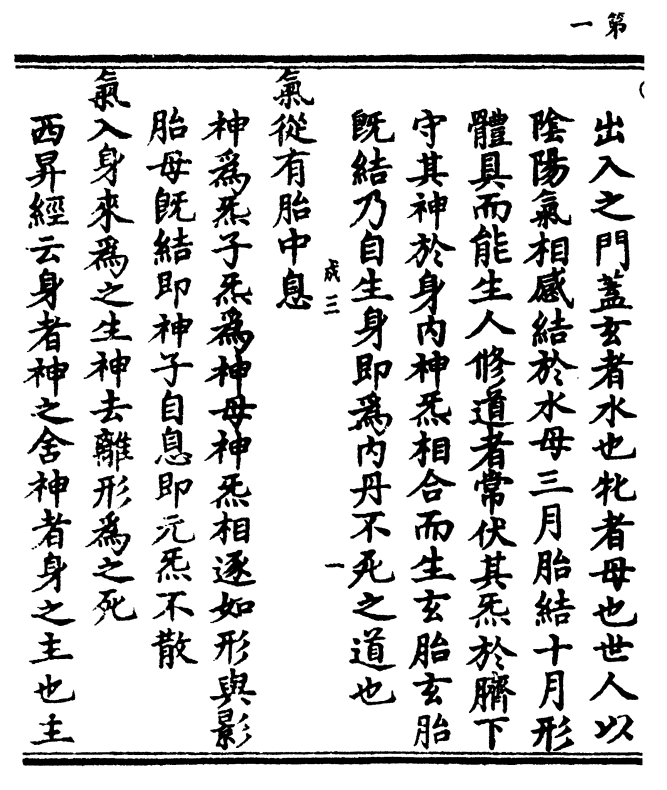 第一
出入之門蓋玄者水也牝者母也世人以
陰陽氣相感結於水母三月胎結十月形
體具而能生人修道者常伏其炁於臍下
守其神於身內神炁相合而生玄胎玄胎
既結乃自生身即爲內丹不死之道也
成三
一
氣從有胎中息
神爲炁子炁爲神母神炁相逐如形與影
胎母既結即神子自息即元炁不散
氣入身來爲之生神去離形爲之死
西昇經云身者神之舍神者身之主也主